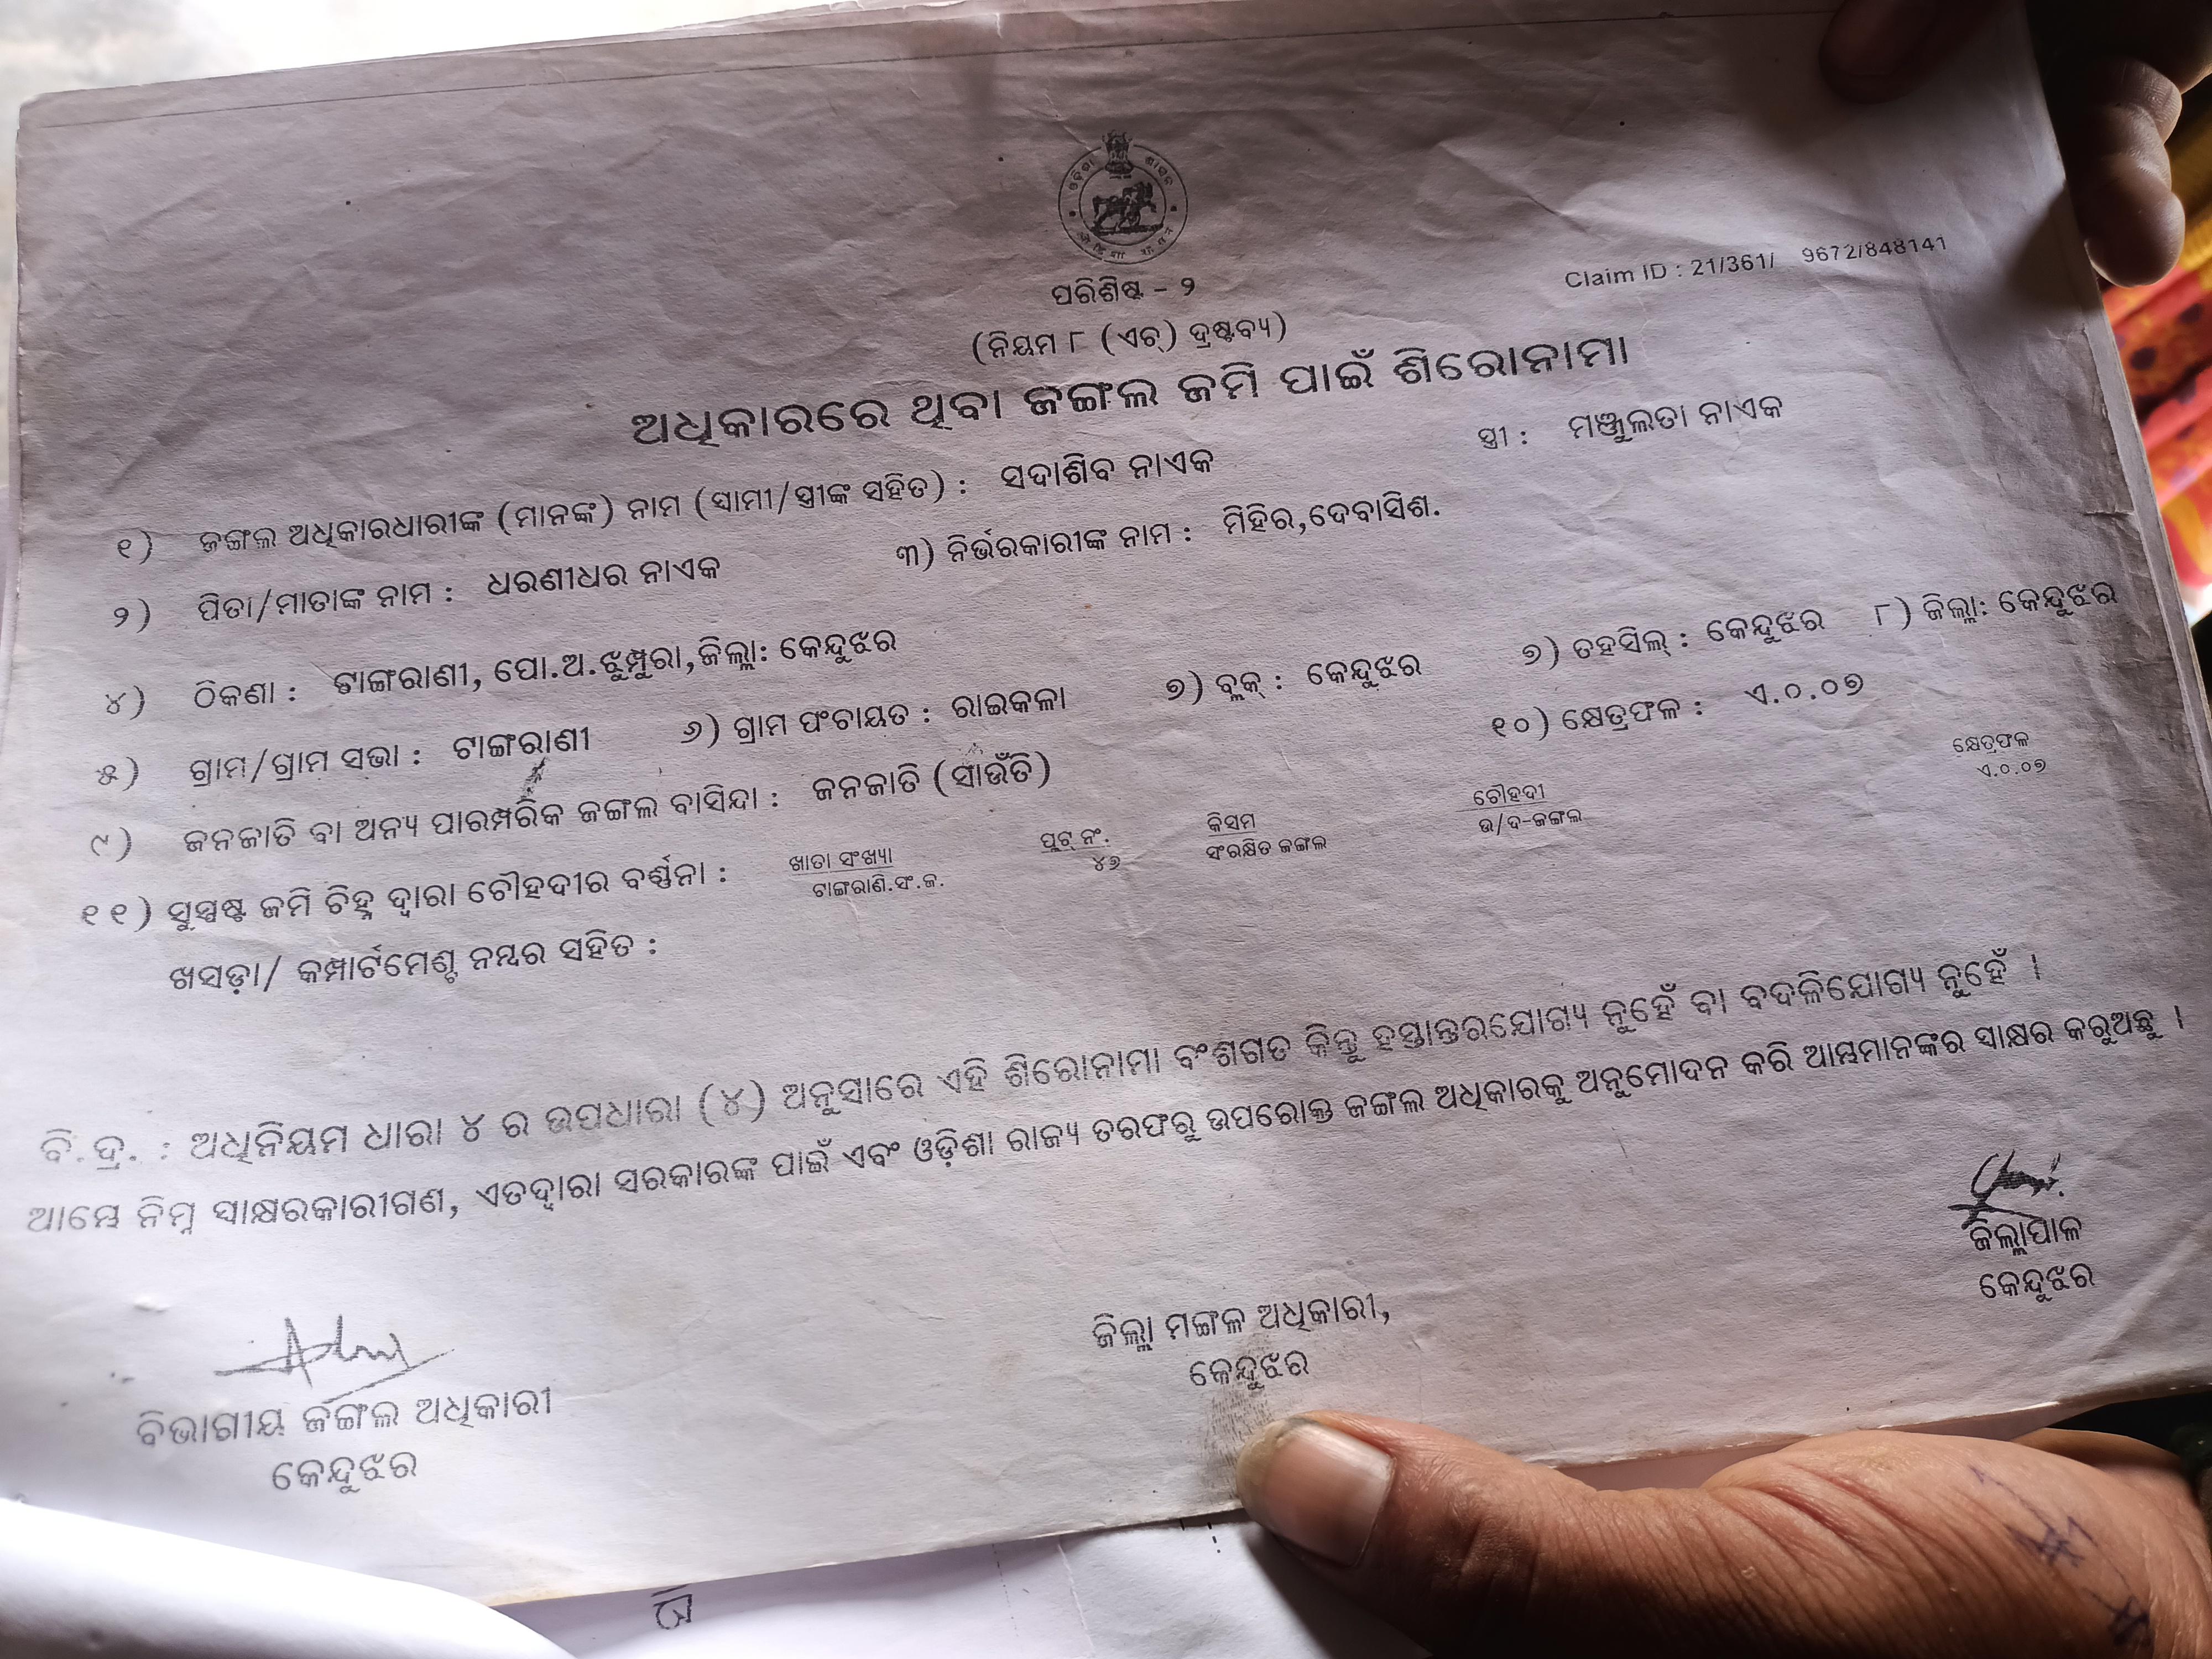 ଓଡ଼ିଶା ଶାସନ
Claim ID : 21/361/ 9672/848141
ପରିଶିଷ୍ଟ - ୨
(ନିୟମ ୮ (ଏଚ୍) ଦ୍ରଷ୍ଟବ୍ୟ)
ଅଧିକାରରେ ଥିବା ଜଙ୍ଗଲ ଜମି ପାଇଁ ଶିରୋନାମା
୧) ଜଙ୍ଗଲ ଅଧିକାରଧାରୀଙ୍କ (ମାନଙ୍କ) ନାମ (ସ୍ୱାମୀ/ସ୍ତ୍ରୀଙ୍କ ସହିତ) : ସଦାଶିବ ନାଏକ ସ୍ତ୍ରୀ : ମଞ୍ଜୁଲତା ନାଏକ
୨) ପିତା/ମାତାଙ୍କ ନାମ : ଧରଣୀଧର ନାଏକ ୩) ନିର୍ଭରକାରୀଙ୍କ ନାମ : ମିହିର,ଦେବାସିଶ.
୪) ଠିକଣା : ଟାଙ୍ଗରାଣୀ, ପୋ.ଅ.ଝୁମ୍ପୁରା,ଜିଲ୍ଲା: କେନ୍ଦୁଝର
୫) ଗ୍ରାମ/ଗ୍ରାମ ସଭା : ଟାଙ୍ଗରାଣୀ ୬) ଗ୍ରାମ ପଂଚାୟତ : ରାଇକଳା ୭) ବ୍ଲକ୍ : କେନ୍ଦୁଝର ୭) ତହସିଲ୍ : କେନ୍ଦୁଝର ୮) ଜିଲ୍ଲା: କେନ୍ଦୁଝର
୯) ଜନଜାତି ବା ଅନ୍ୟ ପାରମ୍ପରିକ ଜଙ୍ଗଲ ବାସିନ୍ଦା : ଜନଜାତି (ସାଉଁତି) ୧୦) କ୍ଷେତ୍ରଫଳ : ଏ.୦.୦୭
୧୧) ସୁସ୍ପଷ୍ଟ ଜମି ଚିହ୍ନ ଦ୍ୱାରା ଚୌହଦୀର ବର୍ଣ୍ଣନା : ଖାତା ସଂଖ୍ୟା ପ୍ଲଟ୍ ନଂ. କିସମ ଚୌହଦୀ କ୍ଷେତ୍ରଫଳ
ଟାଙ୍ଗରାଣି.ସଂ.ଜ. ୪୬ ସଂରକ୍ଷିତ ଜଙ୍ଗଲ ଉ/ଦ-ଜଙ୍ଗଲ ଏ.୦.୦୭
ଖସଡ଼ା/ କମ୍ପାର୍ଟମେଣ୍ଟ ନମ୍ବର ସହିତ :
ବି.ଦ୍ର. : ଅଧିନିୟମ ଧାରା ୪ ର ଉପଧାରା (୪) ଅନୁସାରେ ଏହି ଶିରୋନାମା ବଂଶଗତ କିନ୍ତୁ ହସ୍ତାନ୍ତରଯୋଗ୍ୟ ନୁହେଁ ବା ବଦଳିଯୋଗ୍ୟ ନୁହେଁ ।
ଆମ୍ଭେ ନିମ୍ନ ସାକ୍ଷରକାରୀଗଣ, ଏତଦ୍ୱାରା ସରକାରଙ୍କ ପାଇଁ ଏବଂ ଓଡ଼ିଶା ରାଜ୍ୟ ତରଫରୁ ଉପରୋକ୍ତ ଜଙ୍ଗଲ ଅଧିକାରକୁ ଅନୁମୋଦନ କରି ଆମ୍ଭମାନଙ୍କର ସାକ୍ଷର କରୁଅଛୁ ।
ବିଭାଗୀୟ ଜଙ୍ଗଲ ଅଧିକାରୀ
କେନ୍ଦୁଝର
ଜିଲ୍ଲା ମଙ୍ଗଳ ଅଧିକାରୀ,
କେନ୍ଦୁଝର
ଜିଲ୍ଲାପାଳ
କେନ୍ଦୁଝର